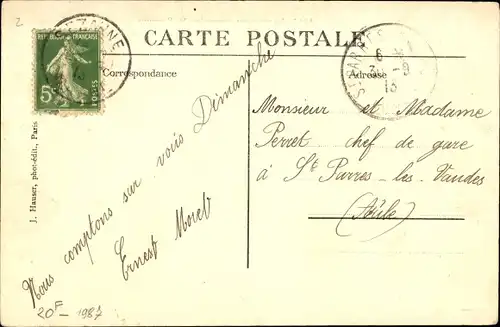 2
CARTE POSTALE
Correspondance
Adresse
REPUBLIQUE FRANÇAISE
5c
POSTES
6
3 - 9
13
J. Hauser, phot-édit., Paris
Nous comptons sur vous Dimanche
Ernest
Monsieur et Madame
Perret chef de gare
à St Parres-les-Vaudes
(Aube)
20F - 1987